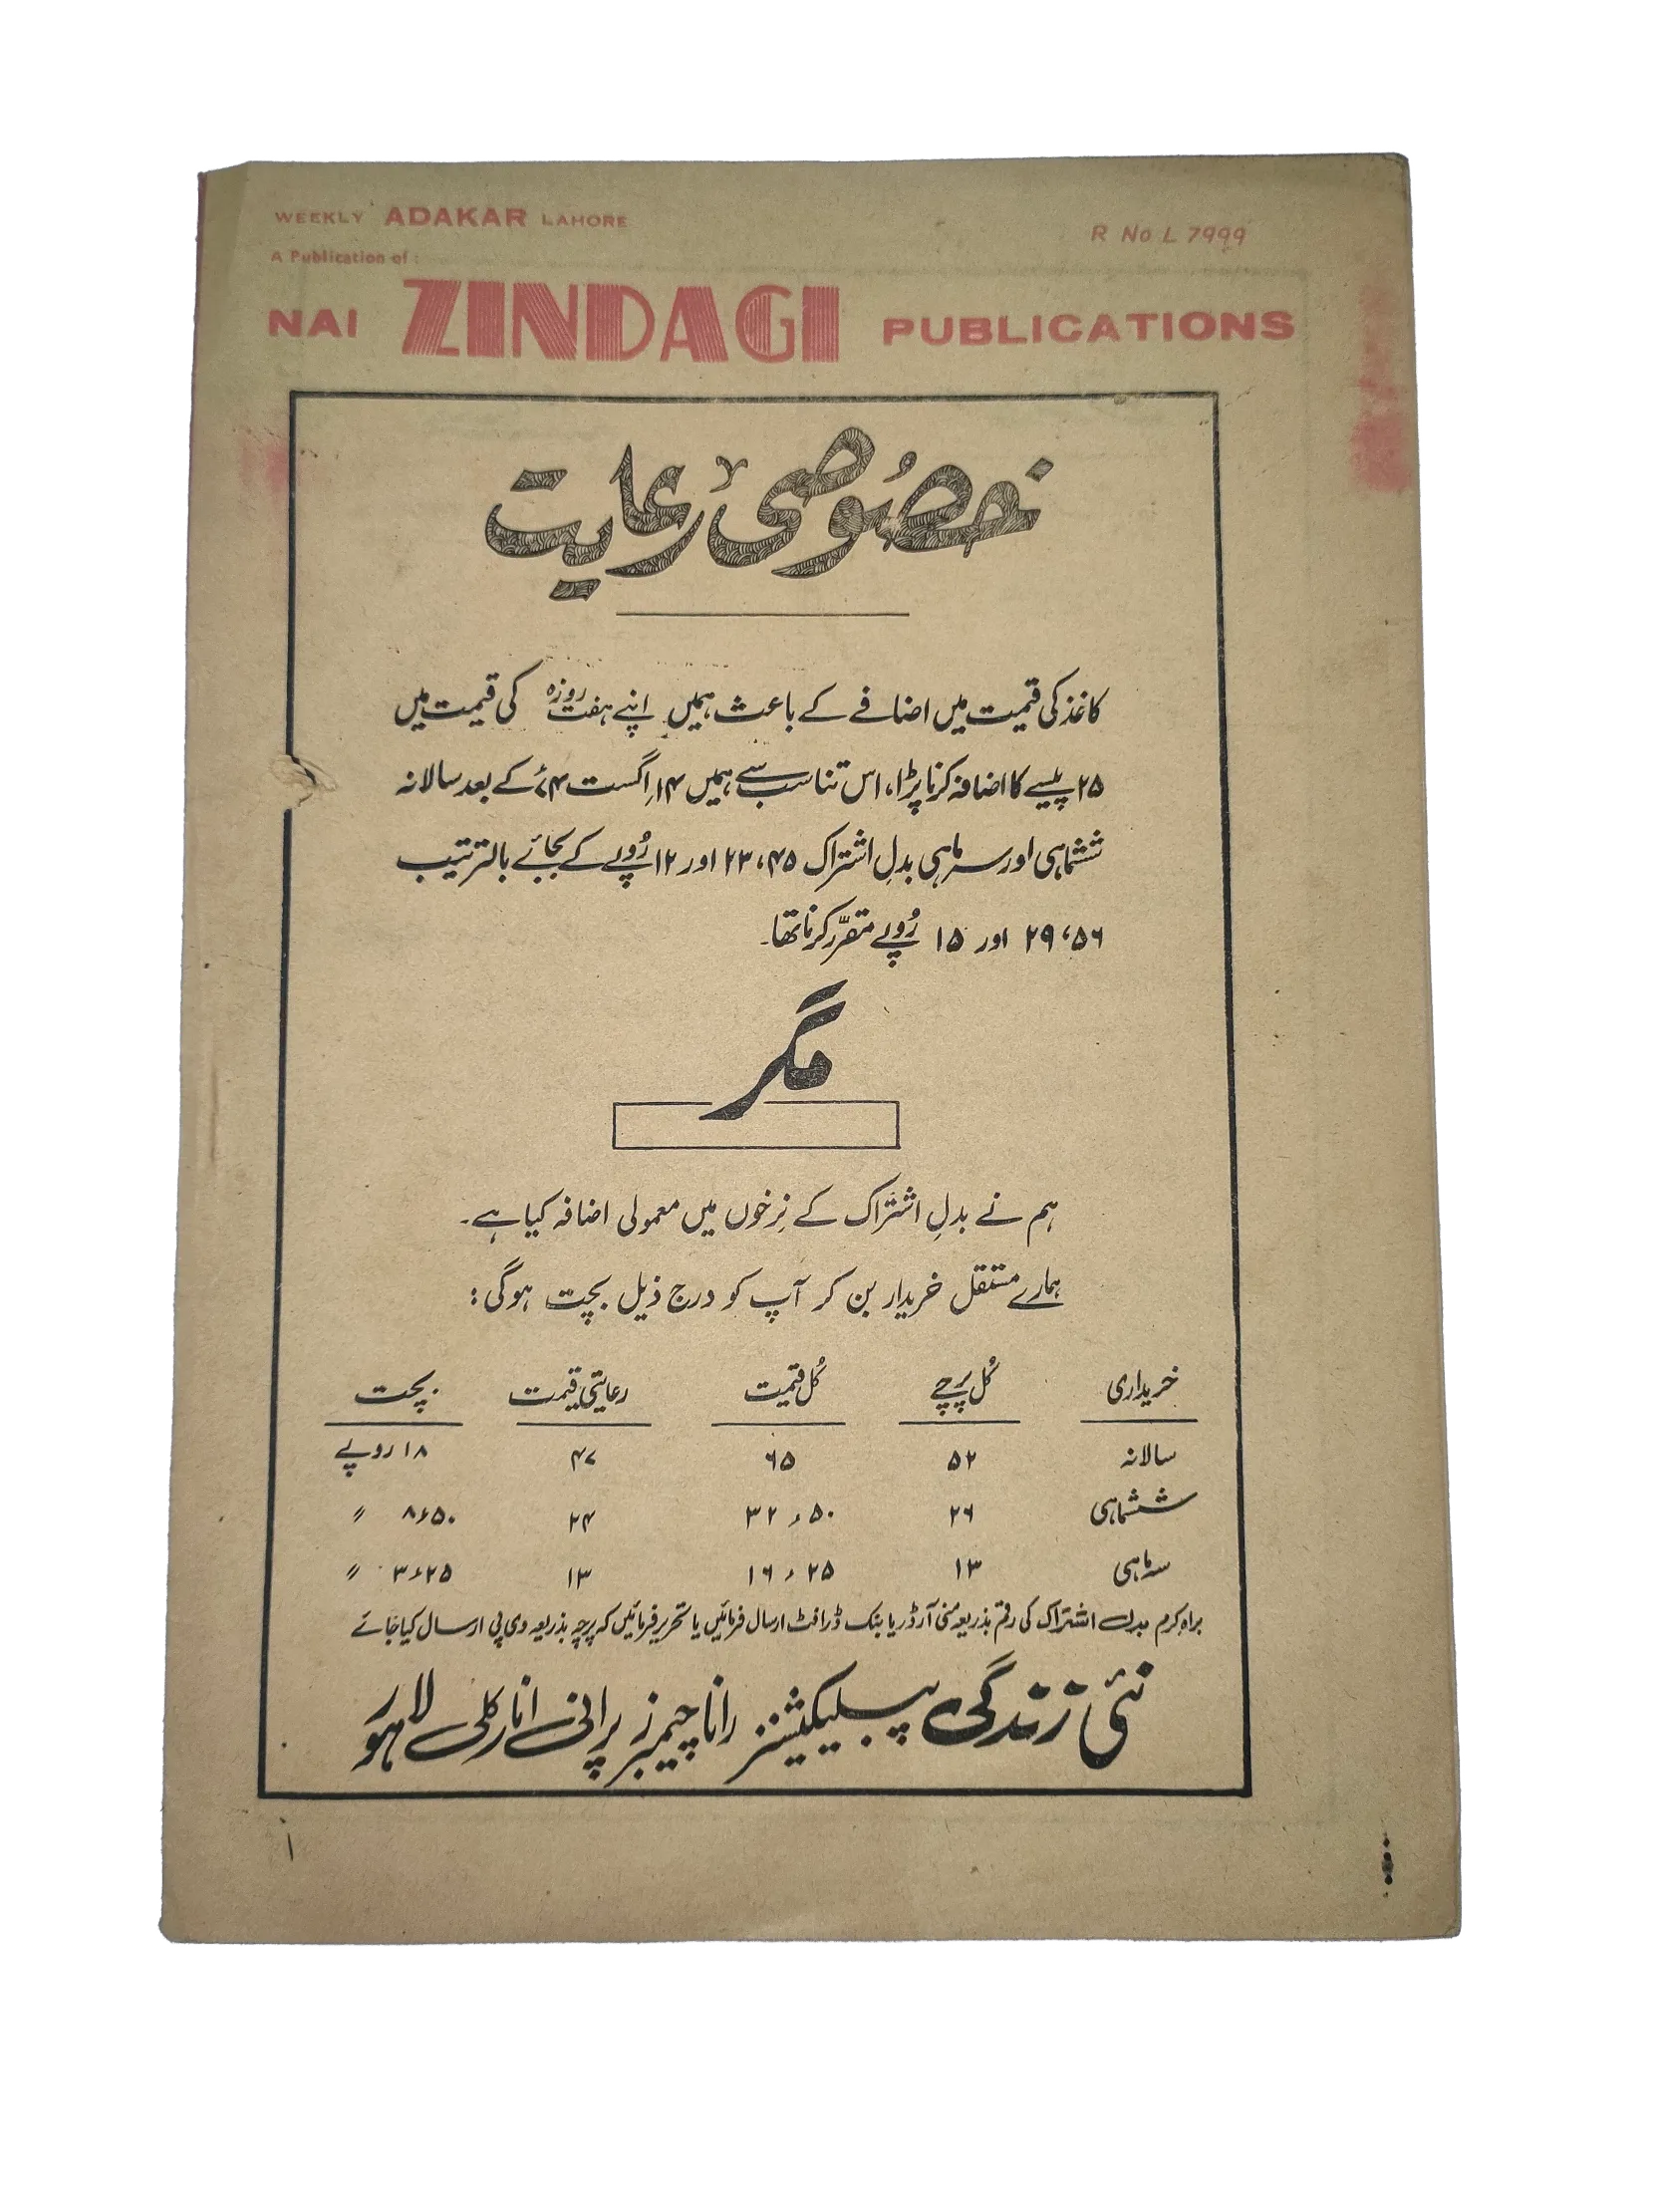 WEEKLY ADAKAR LAHORE
R No L 7999
A Publication of :
NAI ZINDAGI PUBLICATIONS
خصوصی رعایت
کاغذ کی قیمت میں اضافے کے باعث ہمیں اپنے ہفت روزہ کی قیمت میں
۲۵ پیسے کا اضافہ کرنا پڑا، اس تناسب سے ہمیں ۱۴ اگست ۷۴ء کے بعد سالانہ
ششماہی اور سہ ماہی بدلِ اشتراک ۴۵، ۲۳ اور ۱۲ رُوپے کے بجائے بالترتیب
۵۶، ۲۹ اور ۱۵ رُوپے مقرّر کرنا تھا۔
مگر
ہم نے بدلِ اشتراک کے نِرخوں میں معمولی اضافہ کیا ہے۔
ہمارے مستقل خریدار بن کر آپ کو درج ذیل بچت ہوگی:
خریداری کُل پرچے کُل قیمت رعایتی قیمت بچت
سالانہ ۵۲ ۶۵ ۴۷ ۱۸ روپے
ششماہی ۲۶ ۳۲ء۵۰ ۲۴ ۸ء۵۰ 〃
سہ ماہی ۱۳ ۱۶ء۲۵ ۱۳ ۳ء۲۵ 〃
براہِ کرم بدلِ اشتراک کی رقم بذریعہ منی آرڈر یا بنک ڈرافٹ ارسال فرمائیں یا تحریر فرمائیں کہ پرچہ بذریعہ وی پی ارسال کیا جائے
نئی زندگی پبلیکیشنز رانا چیمبرز پرانی انارکلی لاہور
۱